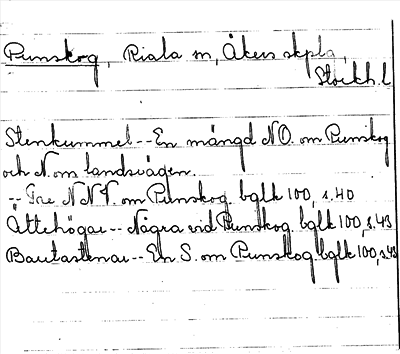 Punskog, Riala sn, Åkers skpla,
Stockh. l
Stenkummel -- En mängd NO. om Punskog
och N. om landsvägen.
-- Tre NNV. om Punskog. bglk 100, s. 40
Ättehögar -- Några vid Punskog. bglk 100, s. 43
Bautastenar -- En S. om Punskog. bglk 100, s. 43